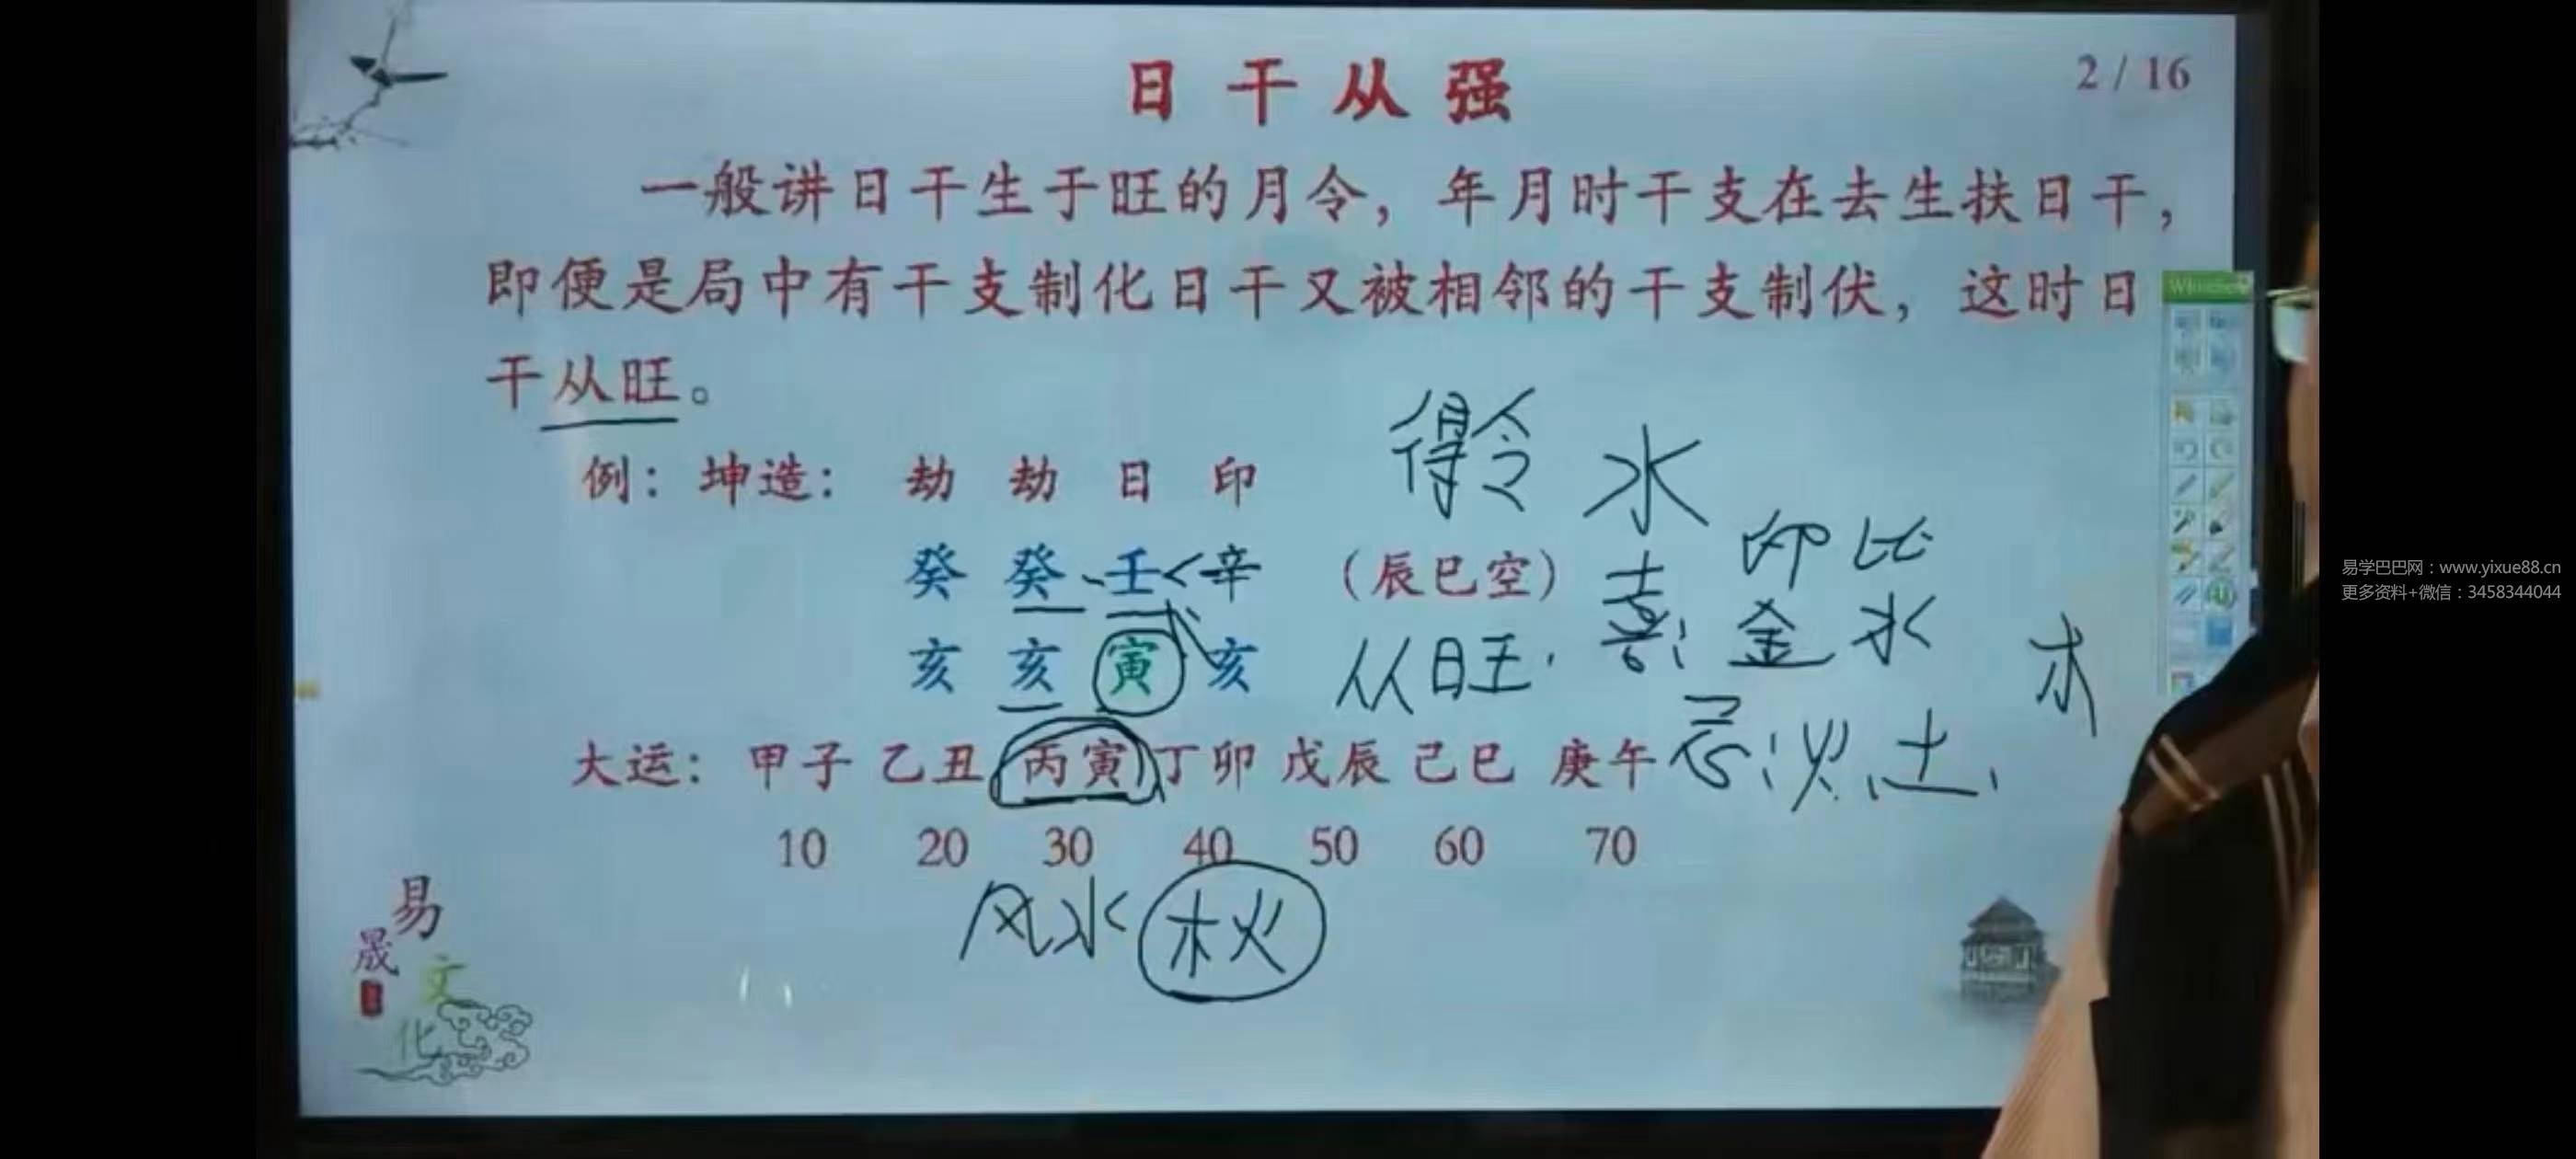 日干从强
2 / 16
一般讲日干生于旺的月令，年月时干支在去生扶日干，
即便是局中有干支制化日干又被相邻的干支制伏，这时日
干从旺。
得令 水
例：坤造： 劫 劫 日 印
印比
癸 癸 壬 辛 （辰巳空） 喜：金水
亥 亥 寅 亥 从旺
木
大运：甲子 乙丑 丙寅 丁卯 戊辰 己巳 庚午 忌：火土
10 20 30 40 50 60 70
风水 木火
易
晟
文
化
易学巴巴网：www.yixue88.cn
更多资料+微信：3458344044